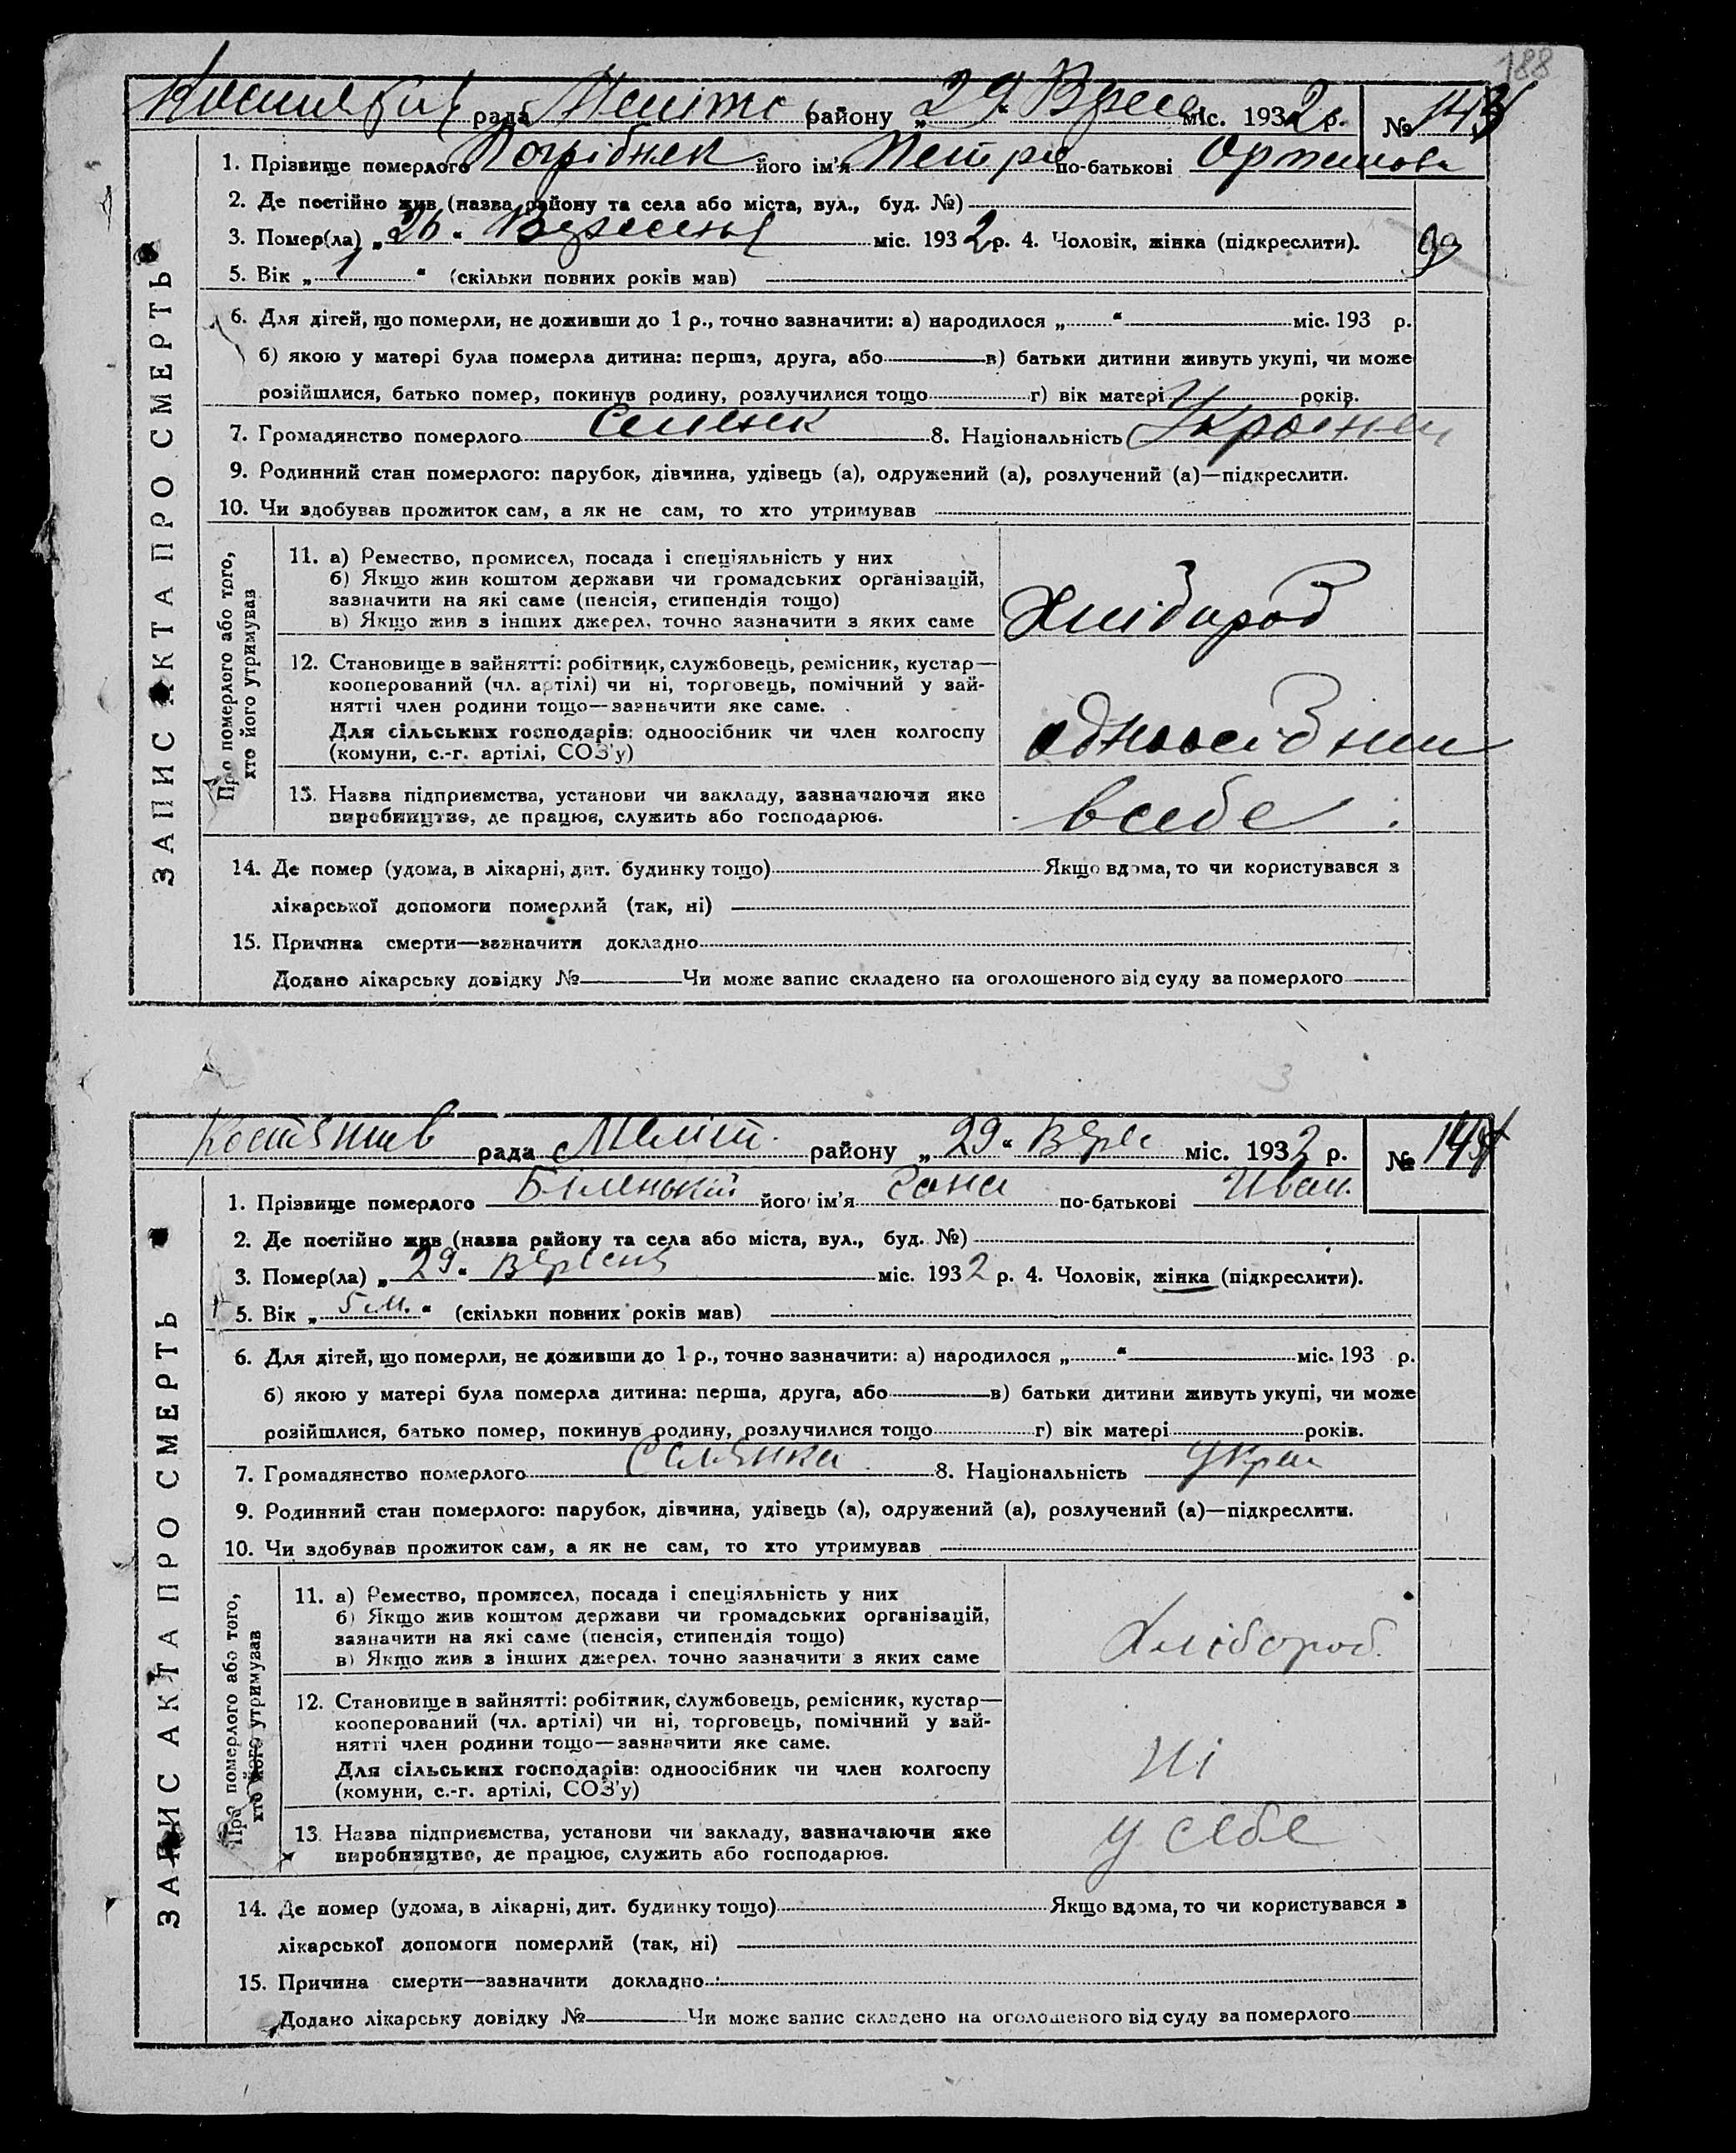 188
рада району „29“ міс. 1932 р. №
1. Прізвище померлого Погрібняк його ім'я Петро по-батькові
2. Де постійно жив (назва району та села або міста, вул., буд. №)
3. Помер(ла) „26“ Вересень міс. 1932 р. 4. Чоловік, жінка (підкреслити).
5. Вік „1“ (скільки повних років мав)
6. Для дітей, що померли, не доживши до 1 р., точно зазначити: а) народилося „ “ міс. 193 р.
б) якою у матері була померла дитина: перша, друга, або в) батьки дитини живуть укупі, чи може
розійшлися, батько помер, покинув родину, розлучилися тощо г) вік матері років.
7. Громадянство померлого 8. Національність
9. Родинний стан померлого: парубок, дівчина, удівець (а), одружений (а), розлучений (а)—підкреслити.
10. Чи здобував прожиток сам, а як не сам, то хто утримував
ЗАПИС АКТА ПРО СМЕРТЬ
Про померлого або того,
хто його утримував
11. а) Ремество, промисел, посада і спеціяльність у них
б) Якщо жив коштом держави чи громадських організацій,
зазначити на які саме (пенсія, стипендія тощо)
в) Якщо жив з інших джерел, точно зазначити з яких саме
Хлібороб
12. Становище в зайнятті: робітник, службовець, ремісник, кустар—
кооперований (чл. артілі) чи ні, торговець, помічний у зай-
нятті член родини тощо—зазначити яке саме.
Для сільських господарів: одноосібник чи член колгоспу
(комуни, с.-г. артілі, СОЗ'у)
13. Назва підприємства, установи чи закладу, зазначаючи яке
виробництво, де працює, служить або господарює.
в себе
14. Де помер (удома, в лікарні, дит. будинку тощо) Якщо вдома, то чи користувався з
лікарської допомоги померлий (так, ні)
15. Причина смерти—зазначити докладно
Додано лікарську довідку № Чи може запис складено на оголошеного від суду за померлого
рада Меліт. району „29“ Верес міс. 1932 р. № 144
1. Прізвище померлого Біленький його ім'я по-батькові Иван.
2. Де постійно жив (назва району та села або міста, вул., буд. №)
3. Помер(ла) „29“ Вересня міс. 1932 р. 4. Чоловік, жінка (підкреслити).
5. Вік „5 м.“ (скільки повних років мав)
6. Для дітей, що померли, не доживши до 1 р., точно зазначити: а) народилося „ “ міс. 193 р.
б) якою у матері була померла дитина: перша, друга, або в) батьки дитини живуть укупі, чи може
розійшлися, батько помер, покинув родину, розлучилися тощо г) вік матері років.
7. Громадянство померлого Селянка 8. Національність Украи
9. Родинний стан померлого: парубок, дівчина, удівець (а), одружений (а), розлучений (а)—підкреслити.
10. Чи здобував прожиток сам, а як не сам, то хто утримував
ЗАПИС АКТА ПРО СМЕРТЬ
Про померлого або того,
хто його утримував
11. а) Ремество, промисел, посада і спеціяльність у них
б) Якщо жив коштом держави чи громадських організацій,
зазначити на які саме (пенсія, стипендія тощо)
в) Якщо жив з інших джерел, точно зазначити з яких саме
Хлібороб.
12. Становище в зайнятті: робітник, службовець, ремісник, кустар—
кооперований (чл. артілі) чи ні, торговець, помічний у зай-
нятті член родини тощо—зазначити яке саме.
Для сільських господарів: одноосібник чи член колгоспу
(комуни, с.-г. артілі, СОЗ'у)
Ні
13. Назва підприємства, установи чи закладу, зазначаючи яке
виробництво, де працює, служить або господарює.
у себе
14. Де помер (удома, в лікарні, дит. будинку тощо) Якщо вдома, то чи користувався з
лікарської допомоги померлий (так, ні)
15. Причина смерти—зазначити докладно
Додано лікарську довідку № Чи може запис складено на оголошеного від суду за померлого